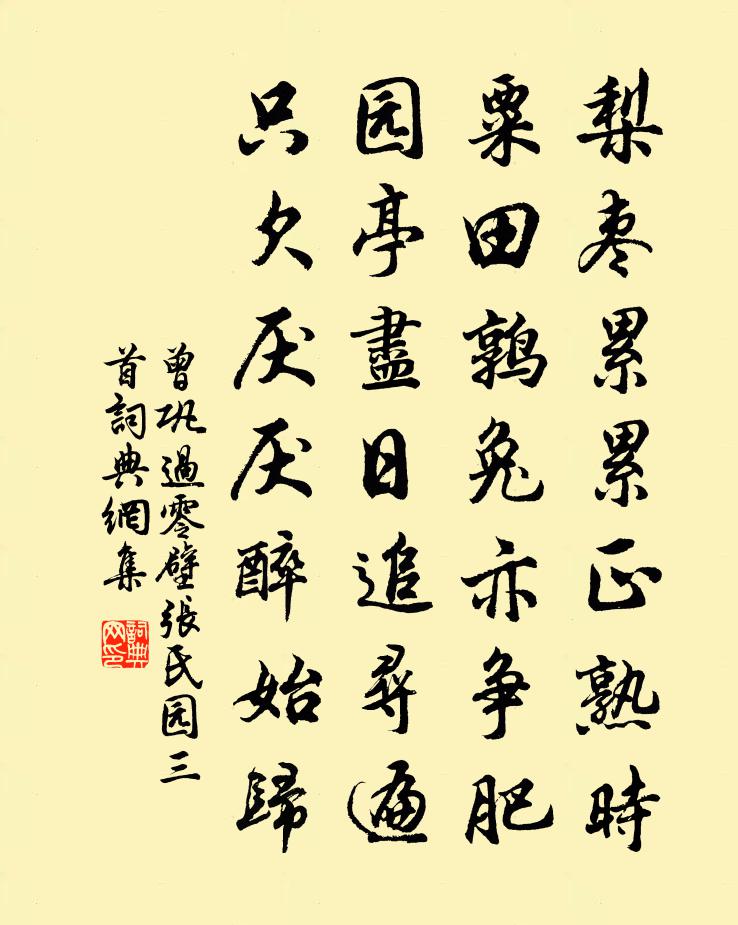 梨枣累累正熟時
粟田鹑兔亦争肥
园亭盡日追尋遍
只欠厌厌醉始歸
曾巩過零壁張氏园三
首詞典網集
詞典網印